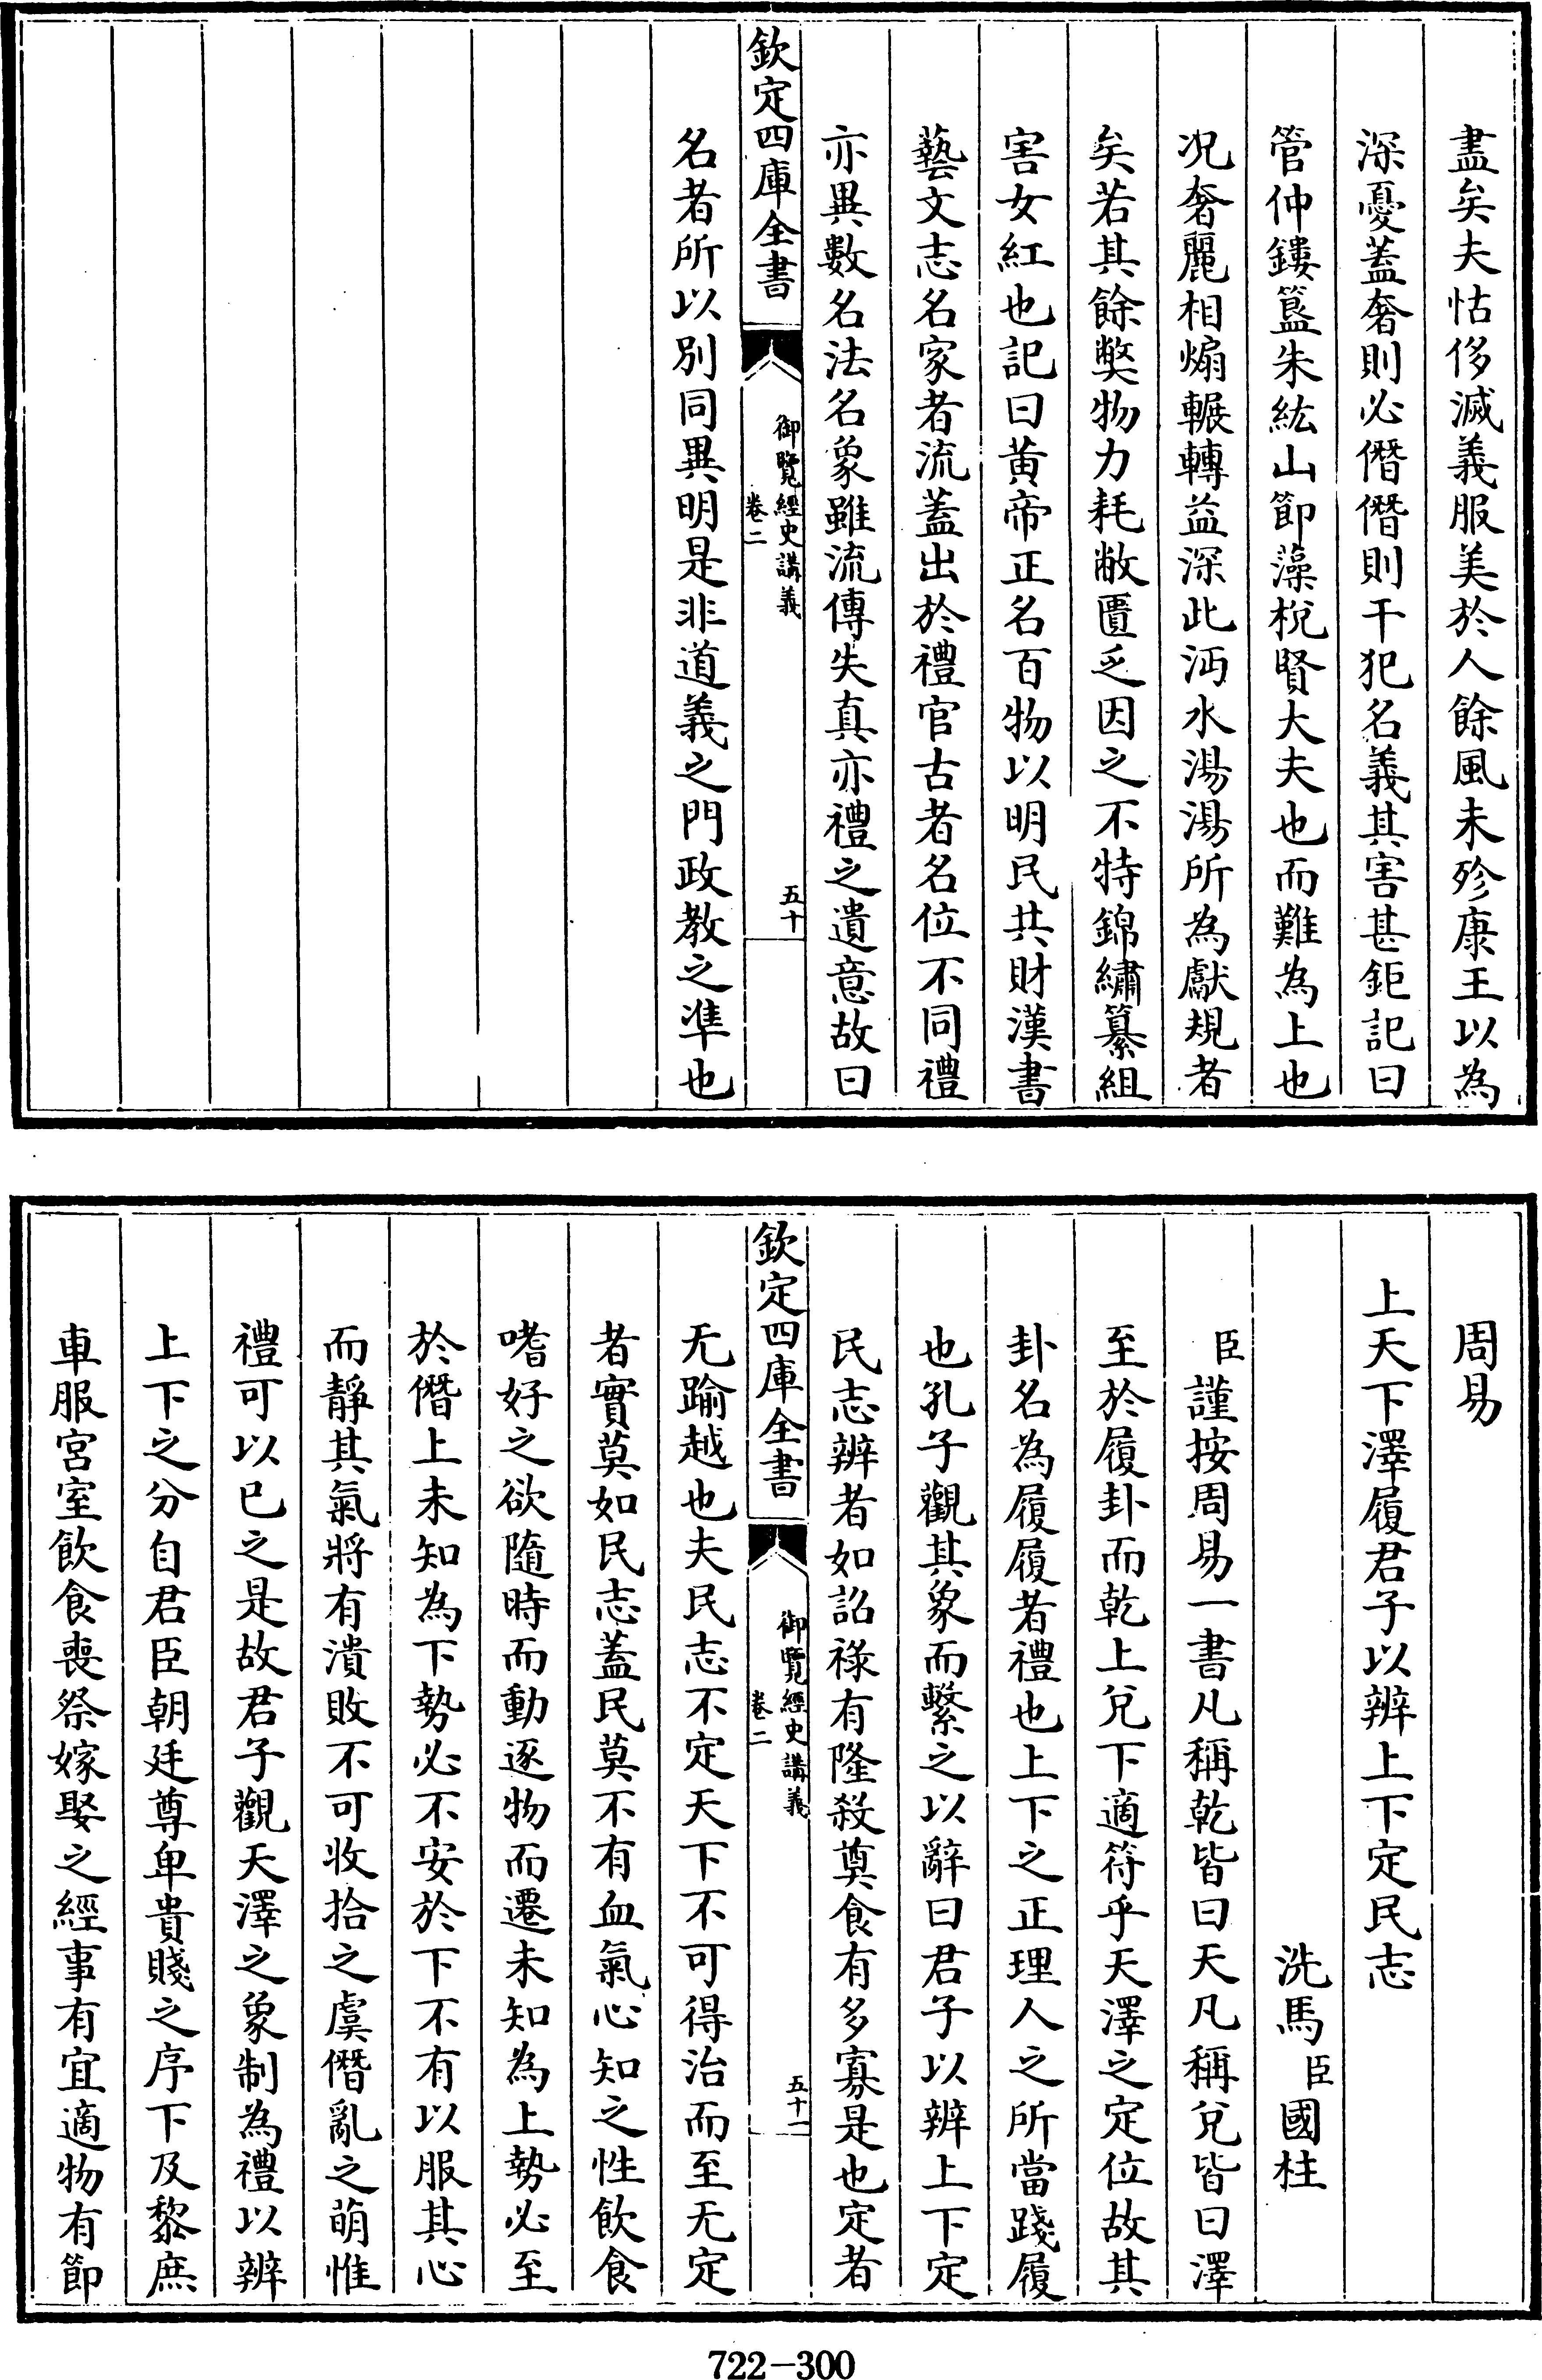 盡矣夫怙侈滅義服美於人餘風未殄康王以為
深憂蓋奢則必僭僭則干犯名義其害甚鉅記曰
管仲鏤簋朱紘山節藻梲賢大夫也而難為上也
况奢麗相煽輾轉益深此沔水湯湯所為獻規者
矣若其餘獘物力耗敝匱乏因之不特錦繡纂組
害女紅也記曰黄帝正名百物以明民共財漢書
藝文志名家者流蓋出於禮官古者名位不同禮
亦異數名法名象雖流傳失真亦禮之遺意故曰
欽定四庫全書
御覽經史講義
卷二
五十
名者所以別同異明是非道義之門政教之準也
周易
上天下澤履君子以辨上下定民志
洗馬臣國柱
臣謹按周易一書凡稱乾皆曰天凡稱兌皆曰澤
至於履卦而乾上兌下適符乎天澤之定位故其
卦名為履履者禮也上下之正理人之所當踐履
也孔子觀其象而繫之以辭曰君子以辨上下定
民志辨者如詔祿有隆殺奠食有多寡是也定者
欽定四庫全書
御覽經史講義
卷二
五十一
无踰越也夫民志不定天下不可得治而至无定
者實莫如民志蓋民莫不有血氣心知之性飲食
嗜好之欲隨時而動逐物而遷未知為上勢必至
於僭上未知為下勢必不安於下不有以服其心
而靜其氣將有潰敗不可收拾之虞僭亂之萌惟
禮可以已之是故君子觀天澤之象制為禮以辨
上下之分自君臣朝廷尊卑貴賤之序下及黎庶
車服宮室飲食喪祭嫁娶之經事有宜適物有節
722-300